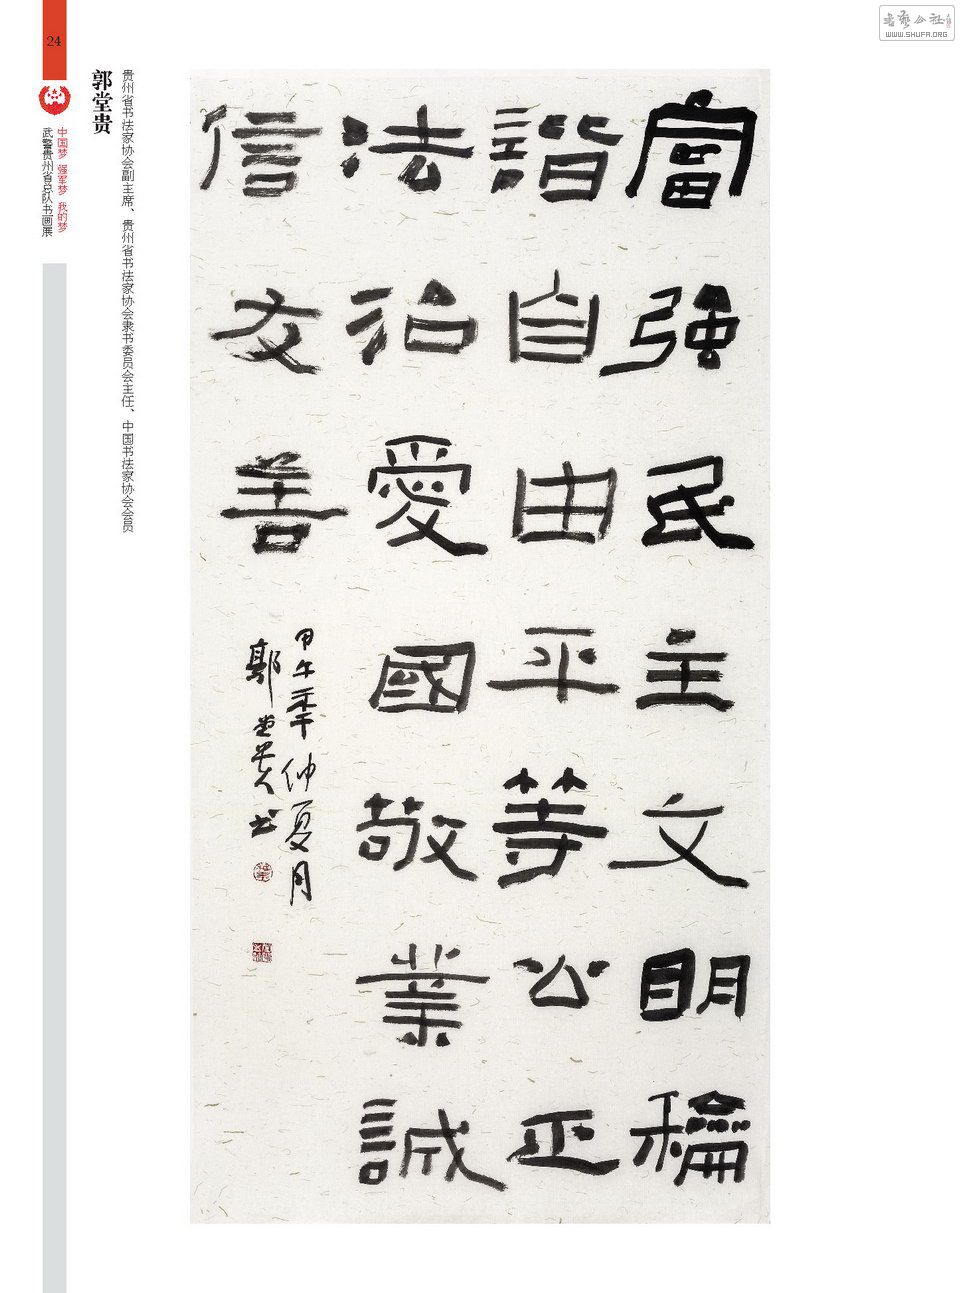 24
中国梦 强军梦 我的梦
武警贵州省总队书画展
郭堂贵
贵州省书法家协会副主席、贵州省书法家协会隶书委员会主任、中国书法家协会会员
富强民主文明龢
諧自由平等公正
法治愛國敬業誠
信友善
甲午年仲夏月
郭堂贵书
书艺公社
WWW.SHUFA.ORG